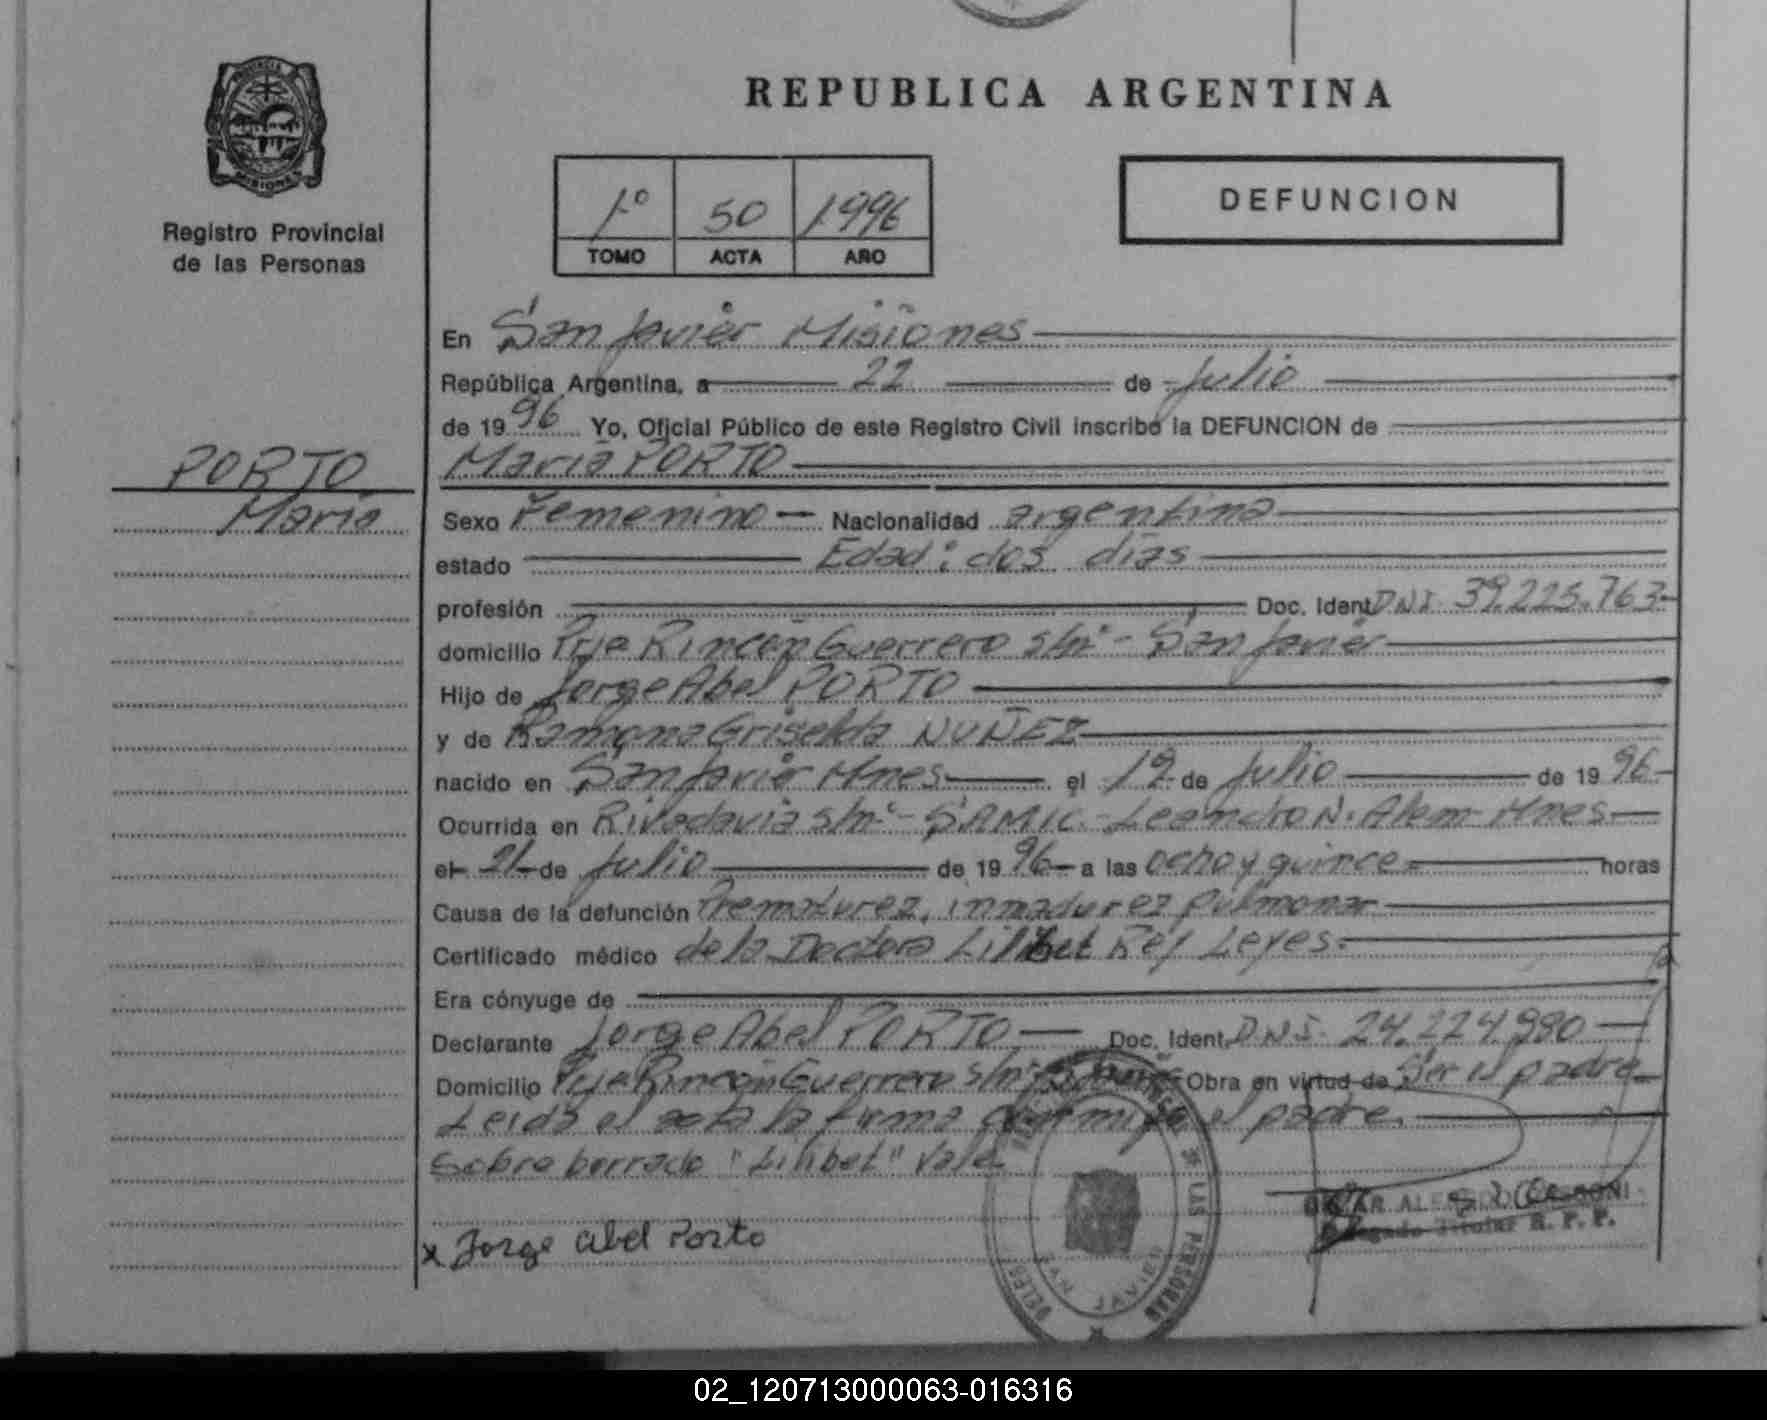 PROVINCIA DE
MISIONES
Registro Provincial
de las Personas
REPUBLICA ARGENTINA
1º 50 1996
TOMO ACTA AÑO
DEFUNCION
En San Javier Misiones
República Argentina, a 22 de Julio
de 1996 Yo, Oficial Público de este Registro Civil inscribo la DEFUNCION de
PORTO
María
María PORTO
Sexo Femenino Nacionalidad argentina
estado Edad: dos días
profesión Doc. Ident. DNI 39.225.763
domicilio Pje Rincón Guerrero s/nº - San Javier
Hijo de Jorge Abel PORTO
y de Ramona Griselda NUÑEZ
nacido en San Javier Mnes el 19 de Julio de 1996
Ocurrida en Rivadavia s/nº - SAMIC - Leandro N. Alem Mnes
el 21 de Julio de 1996 a las ocho y quince horas
Causa de la defunción Prematurez, inmadurez pulmonar
Certificado médico de la Doctora Lilibet Rey Leyes.
Era cónyuge de
Declarante Jorge Abel PORTO Doc. Ident. DNI 24.224.980
Domicilio Pje Rincón Guerrero s/nº S. Javier Obra en virtud de Ser el padre
Leída el acta la firma conmigo el padre.
Sobre borrado "Lilibet" Vale
x Jorge abel Porto
LAS PERSONAS
SAN JAVIER
Delegado Titular R. P. P.
02_120713000063-016316